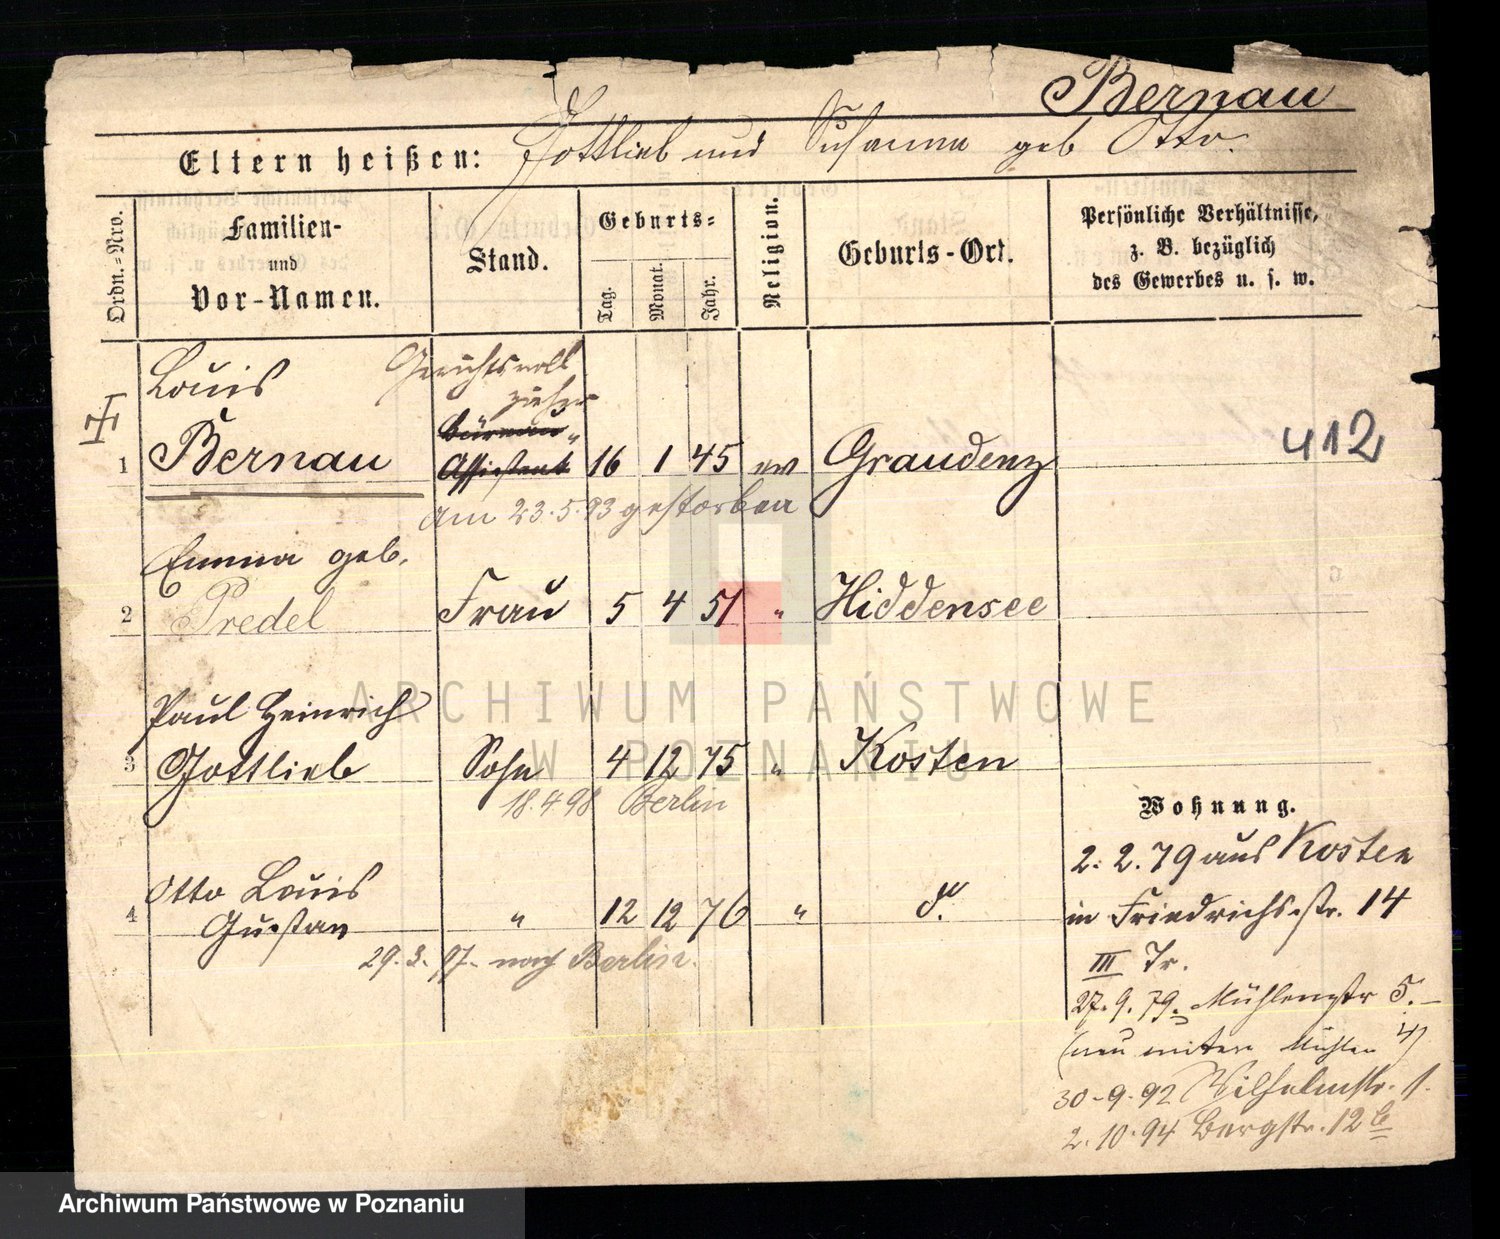 Bernau
Eltern heißen: Gottlieb und Susanna geb Otto.
Ordn.-Nro.
Familien-
und
Vor-Namen.
Stand.
Geburts-
Tag.
Monat.
Jahr.
Religion.
Geburts-Ort.
Persönliche Verhältnisse,
z. B. bezüglich
des Gewerbes u. s. w.
Louis Gerichtsvoll
zieher
Büreau-
1 Bernau Assistent 16 1 45 ev Graudenz
412
am 23.5.93 gestorben
Emma geb.
2 Predel Frau 5 4 51 " Hiddensee
Paul Heinrich
3 Gottlieb Sohn 4 12 75 " Kosten
18.4 98 Berlin
Otto Louis
4 Gustav " 12 12 76 " d.
29.3.97. nach Berlin.
Wohnung.
2. 2. 79 aus Kosten
in Friedrichsstr. 14
III Tr.
27. 9. 79. Mühlenstr 5.-
(neu untere Mühlen 4)
30-9-92 Wilhelmstr. 1.
2. 10. 94 Bergstr. 12 b
ARCHIWUM PAŃSTWOWE
W POZNANIU
Archiwum Państwowe w Poznaniu